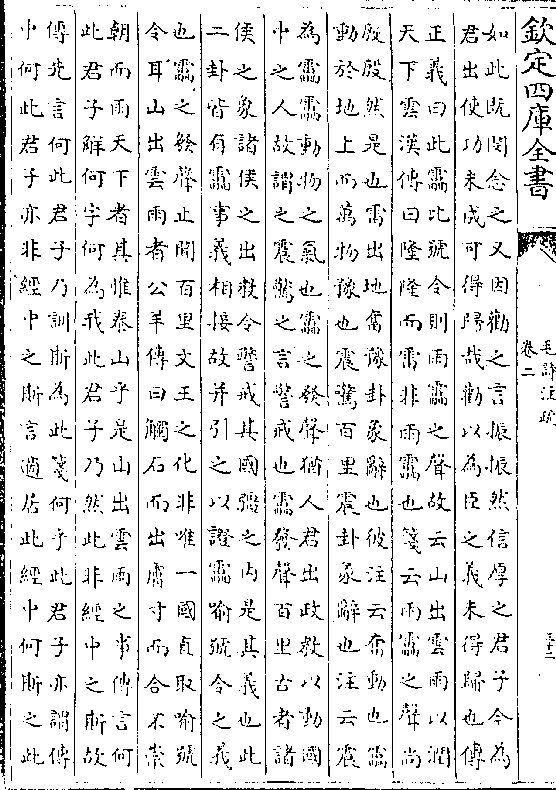 欽定四庫全書
毛詩注疏
卷二
如此既閔念之又因勸之言振振然信厚之君子今為
君出使功未成可得歸哉勸以為臣之義未得歸也傳
正義曰此靁比號令則雨靁之聲故云山出雲雨以潤
天下雲漢傳曰隆隆而雷非雨靁也箋云雨靁之聲尚
殷殷然是也雷出地奮豫卦象辭也彼注云奮動也靁
動於地上而萬物豫也震驚百里震卦彖辭也注云震
為靁靁動物之氣也靁之發聲猶人君出政教以動國
中之人故謂之震驚之言警戒也靁發聲百里古者諸
侯之象諸侯之出教令警戒其國疆之內是其義也此
二卦皆有靁事義相接故并引之以證靁喻號令之義
也靁之發聲止聞百里文王之化非唯一國直取喻號
令耳山出雲雨者公羊傳曰觸石而出膚寸而合不崇
朝而雨天下者其惟泰山乎是山出雲雨之事傳言何
此君子解何字何為我此君子乃然此非經中之斯故
傳先言何此君子乃訓斯為此箋何乎此君子亦謂傳
中何此君子亦非經中之斯言適居此經中何斯之此